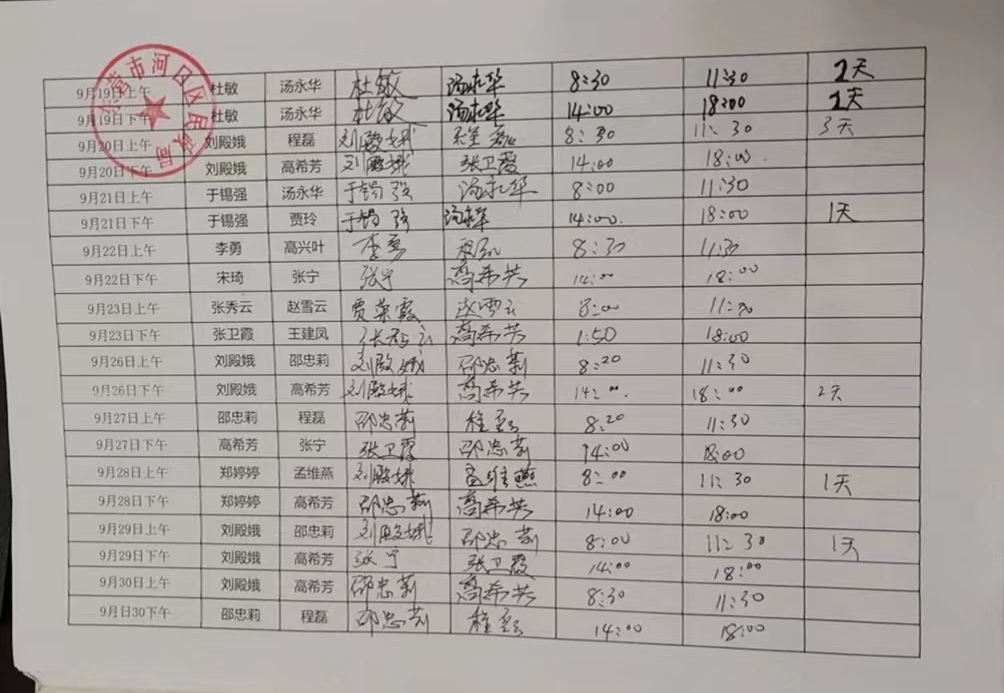 东营市河口区民政局
9月19日上午 杜敏 汤永华 杜敏 汤永华 8:30 11:30 2天
9月19日下午 杜敏 汤永华 杜敏 汤永华 14:00 18:00 2天
9月20日上午 刘殿娥 程磊 刘殿娥 程磊 8:30 11:30 3天
9月20日下午 刘殿娥 高希芳 刘殿娥 张卫霞 14:00 18:00
9月21日上午 于锡强 汤永华 于锡强 汤永华 8:00 11:30
9月21日下午 于锡强 贾玲 于锡强 汤永华 14:00 18:00 1天
9月22日上午 李勇 高兴叶 李勇 8:30 11:30
9月22日下午 宋琦 张宁 张宁 高希芳 14:00 18:00
9月23日上午 张秀云 赵雪云 贾荣霞 赵雪云 8:00 11:30
9月23日下午 张卫霞 王建凤 张秀云 高希芳 1:50 18:00
9月26日上午 刘殿娥 邵忠莉 刘殿娥 邵忠莉 8:20 11:30
9月26日下午 刘殿娥 高希芳 刘殿娥 高希芳 14:00 18:00 2天
9月27日上午 邵忠莉 程磊 邵忠莉 程磊 8:20 11:30
9月27日下午 高希芳 张宁 张卫霞 邵忠莉 14:00 18:00
9月28日上午 郑婷婷 孟维燕 刘殿娥 孟维燕 8:00 11:30 1天
9月28日下午 郑婷婷 高希芳 邵忠莉 高希芳 14:00 18:00
9月29日上午 刘殿娥 邵忠莉 刘殿娥 邵忠莉 8:00 11:30 1天
9月29日下午 刘殿娥 高希芳 张宁 张卫霞 14:00 18:00
9月30日上午 刘殿娥 高希芳 邵忠莉 高希芳 8:30 11:30
9月日30下午 邵忠莉 程磊 邵忠莉 程磊 14:00 18:00